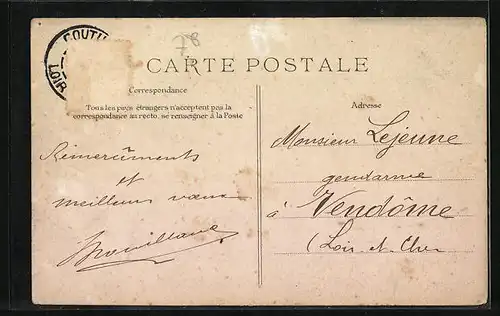 COUTU
LOIR
78
CARTE POSTALE
Correspondance
Tous les pays étrangers n'acceptent pas la
correspondance au recto, se renseigner à la Poste
Adresse
Remerciments
et
meilleurs vœux
Monsieur Lejeune
gendarme
à Vendôme
(Loir et Cher